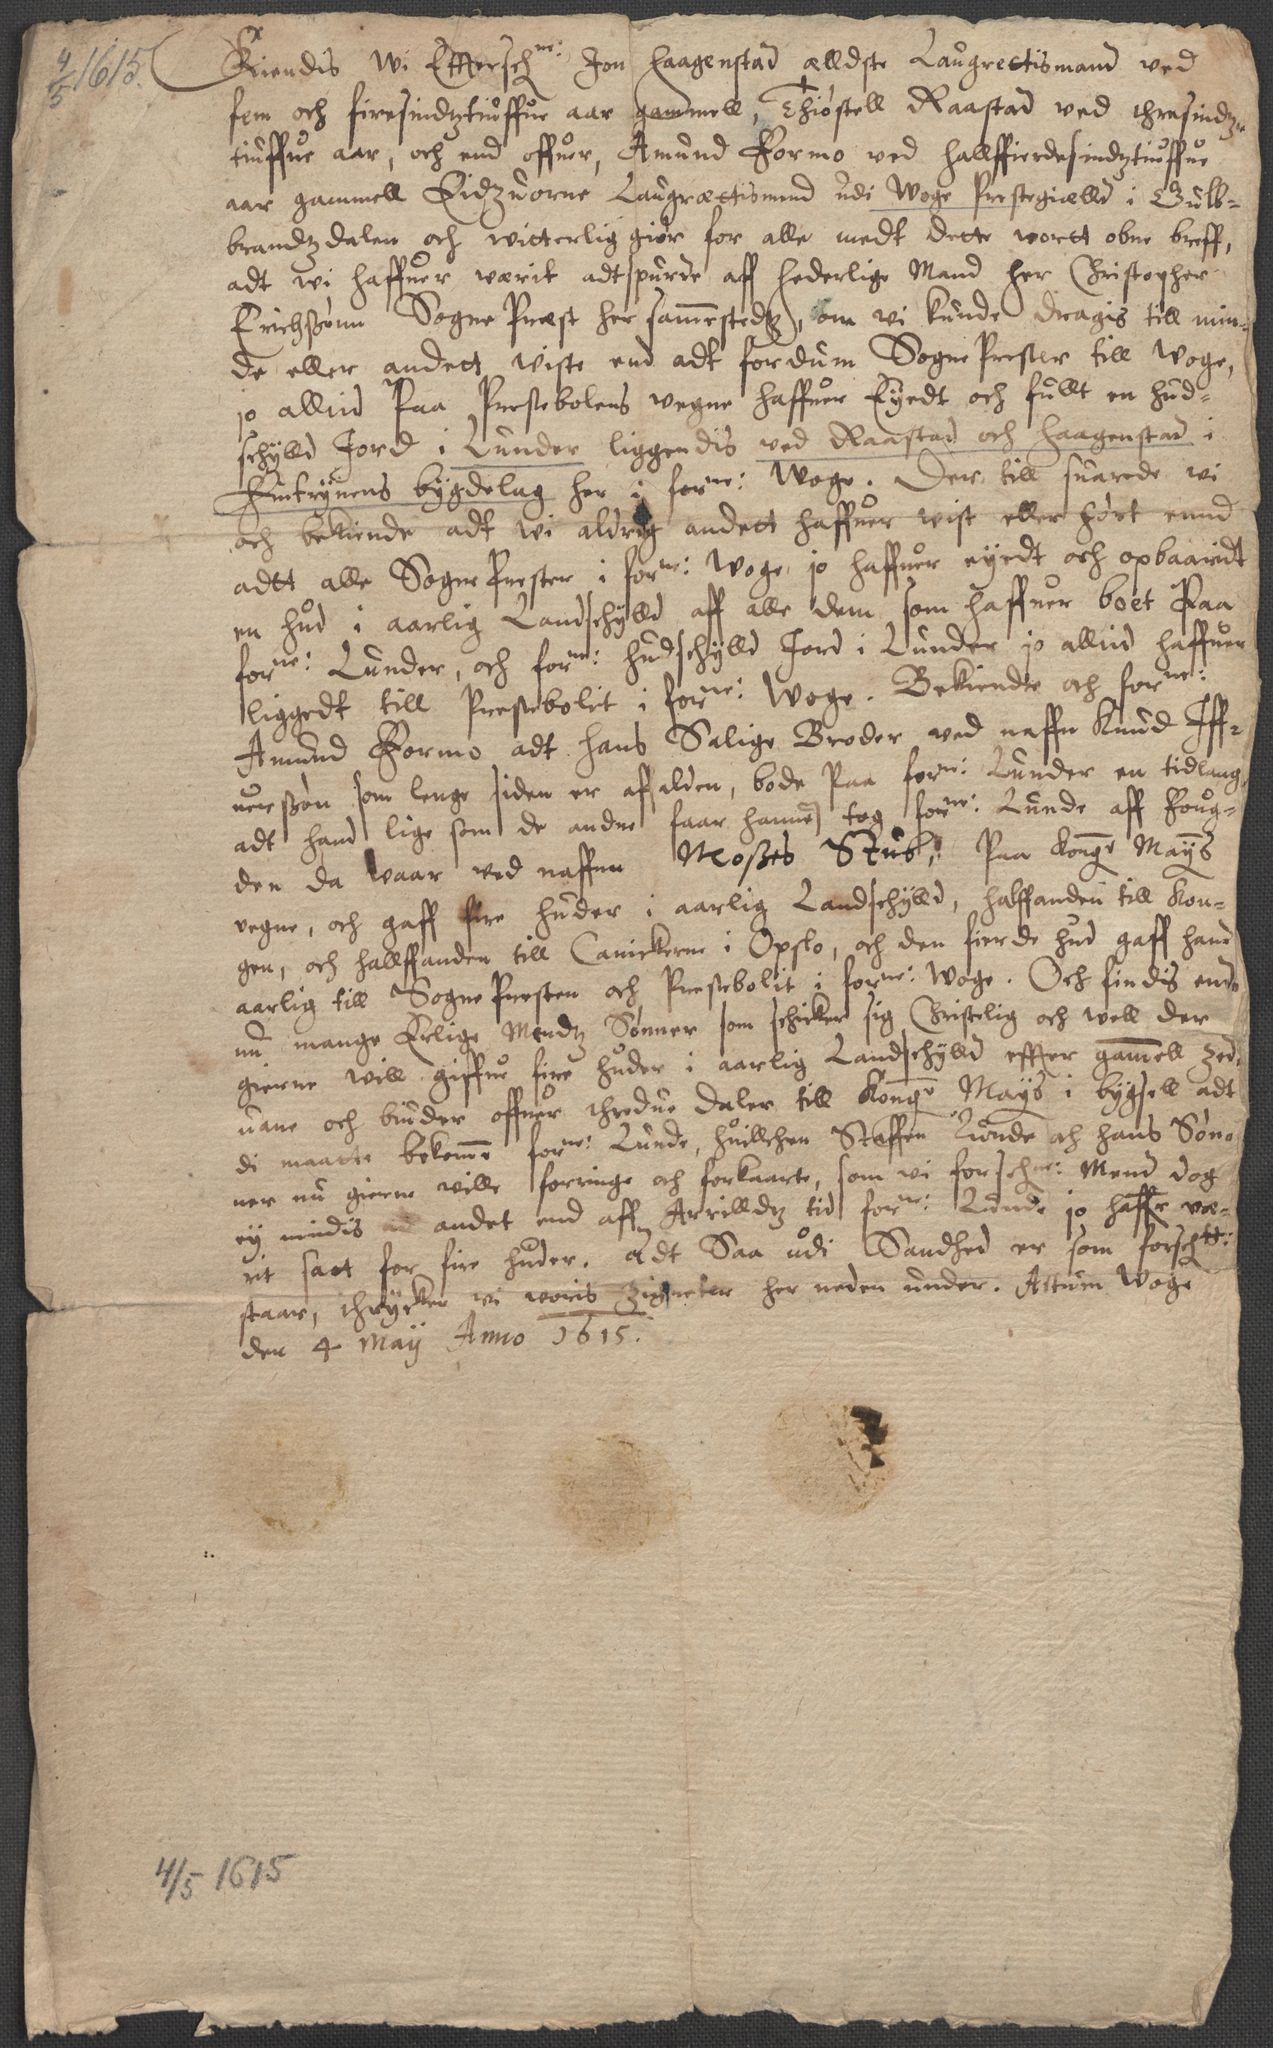 4/5 1615.
Kiendis wi Effterschne: Jon Haagenstad ælldste Laugrettismand ved
fem och firesindtztiuffue aar gammell, Thiøstell Raastad ved thresindtz
tiuffue aar, och end offuer, Amund Formo ved hallffierdesindtztiuffue
aar gammell Eidzuorne Laugrættismend udi Woge Prestegielld i Gulb-
brandtzdalen och witterlig giør for alle medt dette wortt obne breff,
adt wi haffuer wærit adtspurde aff hederlige Mand her Christopher
Erichssønn Sogne Præst her sammestedtz, om vi kunde dragis till min-
de eller andett wiste end adt fordum Sogne Prester till Woge,
jo alltid Paa Prestebolens vegne haffuer Eyedt och fullt en hud-
schylld Jord i Lunder liggendis ved Raastad och Haagenstad i
bygdelag her i forne: Woge. Der till suarede vi
och bekiende adt wi aldrig andett haffuer wist eller hørt ennd
adtt alle Sogne Prester i forne: Woge jo haffuer eyedt och opbaaridt
en hud i aarlig Landschylld aff alle dem som haffuer boet Paa
forne: Lunder, och forne: hudschylld Jord i Lunder jo alltid haffuer
liggedt till Prestebolit i forne: Woge. Bekiendte och forne:
Amund Formo adt hans Salige Broder ved naffn Knud Iff-
uerssøn som lenge siden er afsalden, bode Paa forne: Lunder en tidlang,
adt hand lige som de andre faar hannem tog forne: Lunde aff Foug-
den da waar ved naffnn Mosses Stub, Paa Kongr Mayts
vegne, och gaff fire huder i aarlig Landschylld, halffanden till Kon-
gen, och hallffanden till Canickerne i Opslo, och den fierde hud gaff hand
aarlig till Sogne Presten och Prestebolit i forne: Woge. Och findis end
nu mange Erlige Mendtz Sønner som schicker sig Christelig och well der
gierne will giffue fire huder i aarlig Landschylld effter gamell zed-
uane och biuder offuer thredue daler till Konge Mayts i bygsell adt
di maatte bekomme forne: Lunde, huillchen Steffen Lunde och hans Søn-
ner nu gierne wille forringe och forkaarte, som vi forschne: Mend dog
ey mindis andet end aff Arrilldtz tid forne: Lunde jo haffr væ-
rit satt for fire huder. Adt Saa udi Sandhed er som forschtt:
staar, thrycker vi voris Zigneter her neden under. Actum Woge
den 4 Maij Anno 1615.
4/5 1615